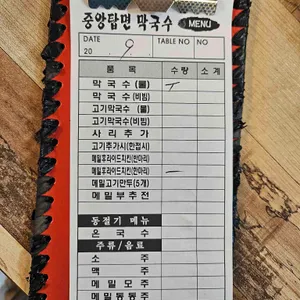 중앙탑면 막국수 MENU
DATE 9 TABLE NO NO
20
품 목 수 량 소 계
막 국 수 (물) T
막 국 수 (비빔)
고기막국수(물)
고기막국수(비빔)
사 리 추 가
고기추가시(한접시)
메밀후라이드치킨(반마리)
메밀후라이드치킨(한마리) ―
메밀고기만두(5개)
메밀부추전
동절기 메뉴
온 국 수
주류/음료
소 주
맥 주
메 밀 모 주
메밀동동주